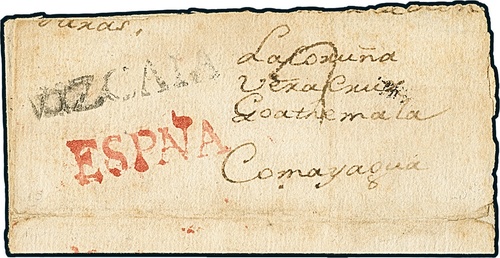 VIZCAIA
ESPNA
La Coruña
Vera Cruz
Goathemala
Comayagua